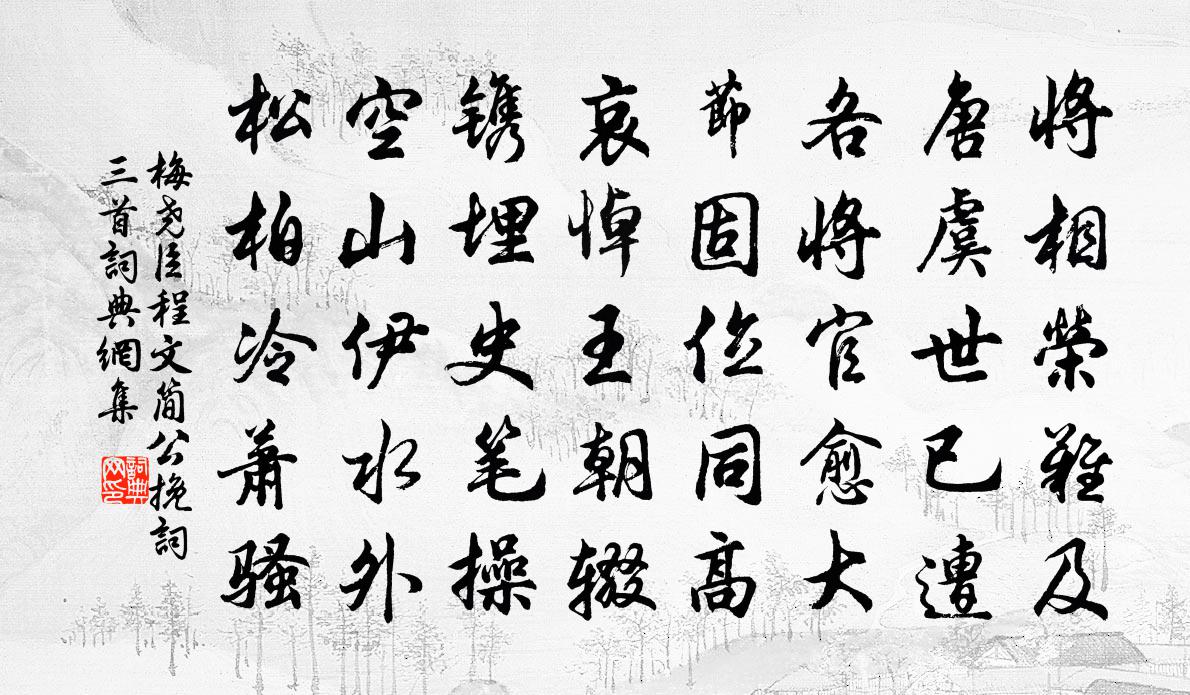 將相榮難及
唐虞世已遭
各將官愈大
節固位同高
哀悼王朝辍
镌埋史笔操
空山伊水外
松柏冷蕭骚
梅尧臣程文简公挽詞
三首詞典網集
詞典
网印